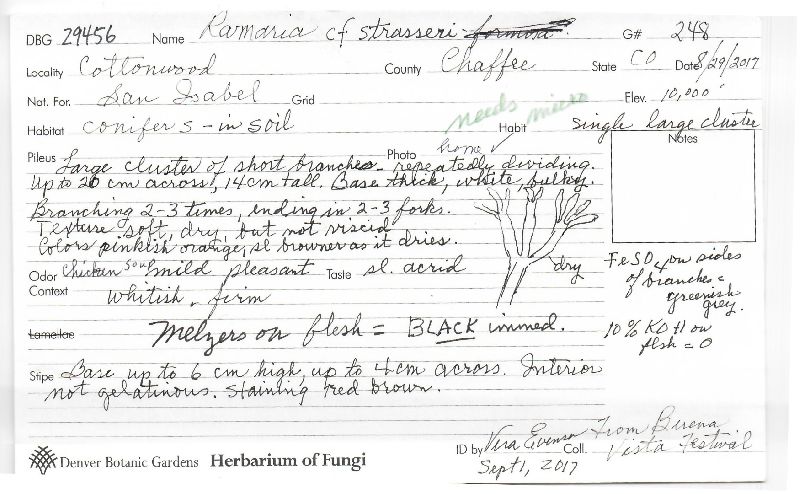 DBG 29456 Name Ramaria cf strasseri formosa G# 248
Locality Cottonwood County Chaffee State CO Date 8/29/2017
Nat. For. San Isabel Grid Elev. 10,000'
needs micro
Habitat conifers - in soil Habit single large cluster
Pileus Large cluster of short branches - repeatedly dividing. Photo home ✓ Notes
Up to 20 cm across, 14cm tall. Base thick, white, bulky.
Branching 2-3 times, ending in 2-3 forks.
Texture soft, dry, but not viscid.
Colors pinkish orange, sl browner as it dries.
Odor Chicken Soup mild pleasant Taste sl. acrid
dry
FeSO4 on sides
of branches =
greenish
grey.
Context whitish - firm
10% KOH on
flsh = 0
Lamellae Melzers on flesh = BLACK immed.
Stipe Base up to 6 cm high, up to 4 cm across. Interior
not gelatinous. Staining red brown.
ID by Vera Evenson Coll. From Buena
Vista Festival
Sept 1, 2017
Denver Botanic Gardens Herbarium of Fungi